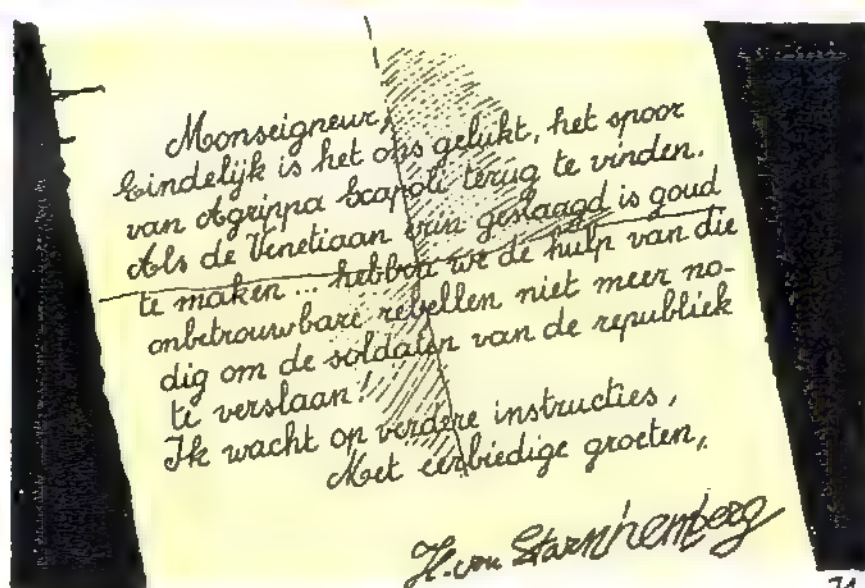 Monseigneur,
Eindelijk is het ons gelukt, het spoor
van Agrippa Scapoli terug te vinden.
Als de Venetiaan erin geslaagd is goud
te maken ... hebben we de hulp van die
onbetrouwbare rebellen niet meer no-
dig om de soldaten van de republiek
te verslaan!
Ik wacht op verdere instructies,
Met eerbiedige groeten,
H. von Starnhemberg